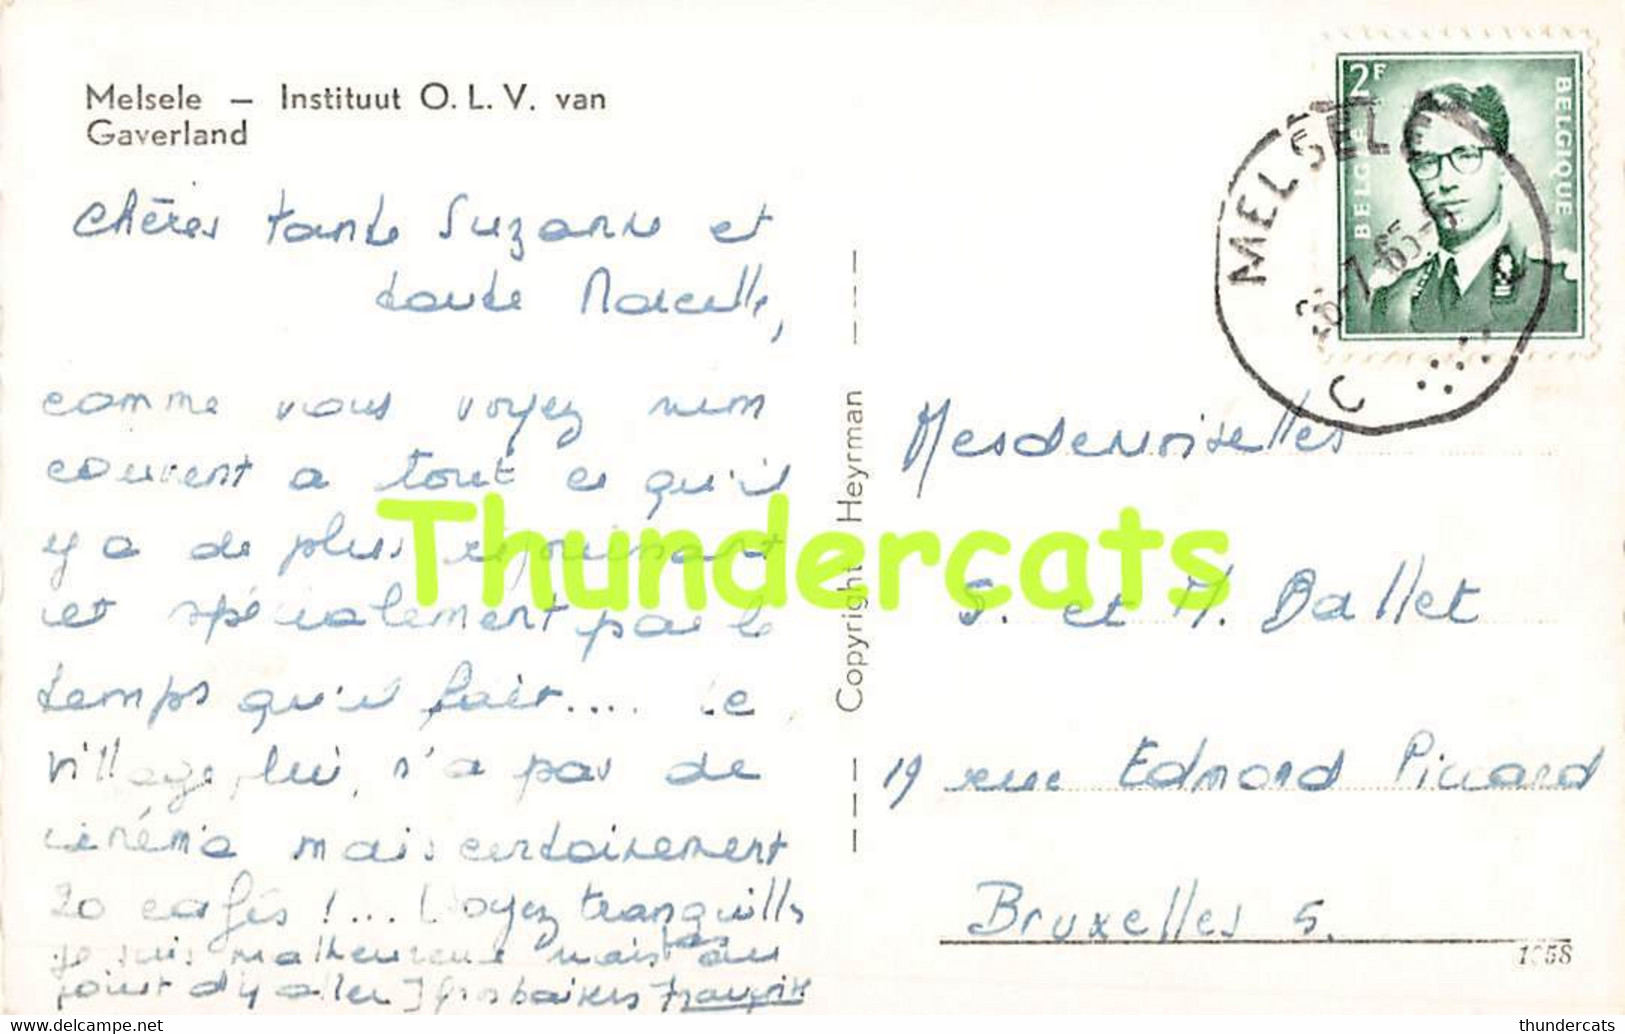 Melsele — Instituut O. L. V. van
Gaverland
Chères tante Suzanne et
tante Marcelle,
comme vous voyez mon
couvent a tout ce qu'il
y a de plus réjouissant
et spécialement par le
temps qu'il fait.... Le
village, lui, n'a pas de
cinéma mais certainement
20 cafés !... Soyez tranquilles
je suis malheureuse mais pas au
point d'y aller Gros baisers Françoise
Copyright Heyrman
2F
BELGIE
BELGIQUE
MELSELE
-7-65
C
Mesdemoiselles
S. et M. Ballet
19 rue Edmond Picard
Bruxelles 5.
1958
Thundercats
www.delcampe.net
thundercats